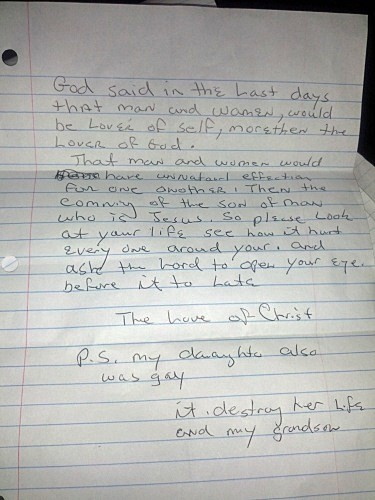 God said in the Last days
that man and women, would
be Lover of self, more then the
Lover of God.
That man and women would
have unnatural effection
for one another. Then the
coming of the son of man
who is Jesus. So please Look
at your life see how it hurt
every one around your. and
ask the Lord to open your eye.
before it to Late
The Love of Christ
P.S. my daughter also
was gay
it. destroy her Life
and my grandson